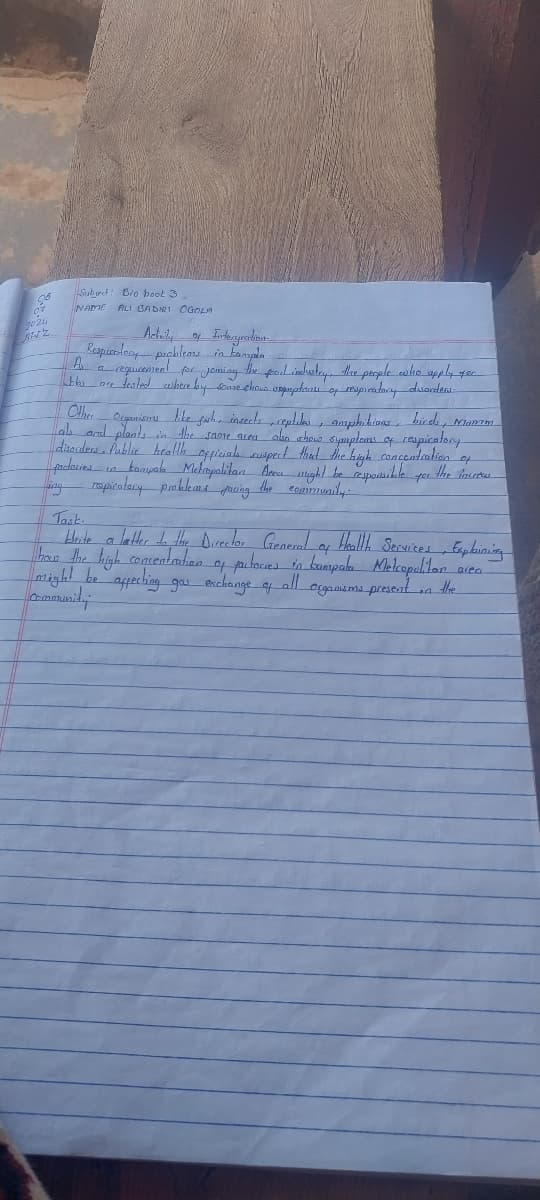 06
07
2024
Subject: Bio book 3.
NAME ALI BADIRI OGOLA
Activity of Intergration.
Respiratory problems in kampala
As a requirement for joining the food industry, the people who apply for
this are tested where by some show symptoms of respiratory disorders.
Other organisms like fish, insects, reptiles, amphibians, birds, Mamm
als and plants in the same area also show symptoms of respiratory
disorders. Public health officials suspect that the high concentration of
factories in kampala Metropolitan Area might be responsible for the increas
ing respiratory problems facing the community.
Task.
Write a letter to the Director General of Health Services, Explaining
how the high concentration of factories in kampala Metropolitan area
might be affecting gas exchange of all organisms present in the
community.